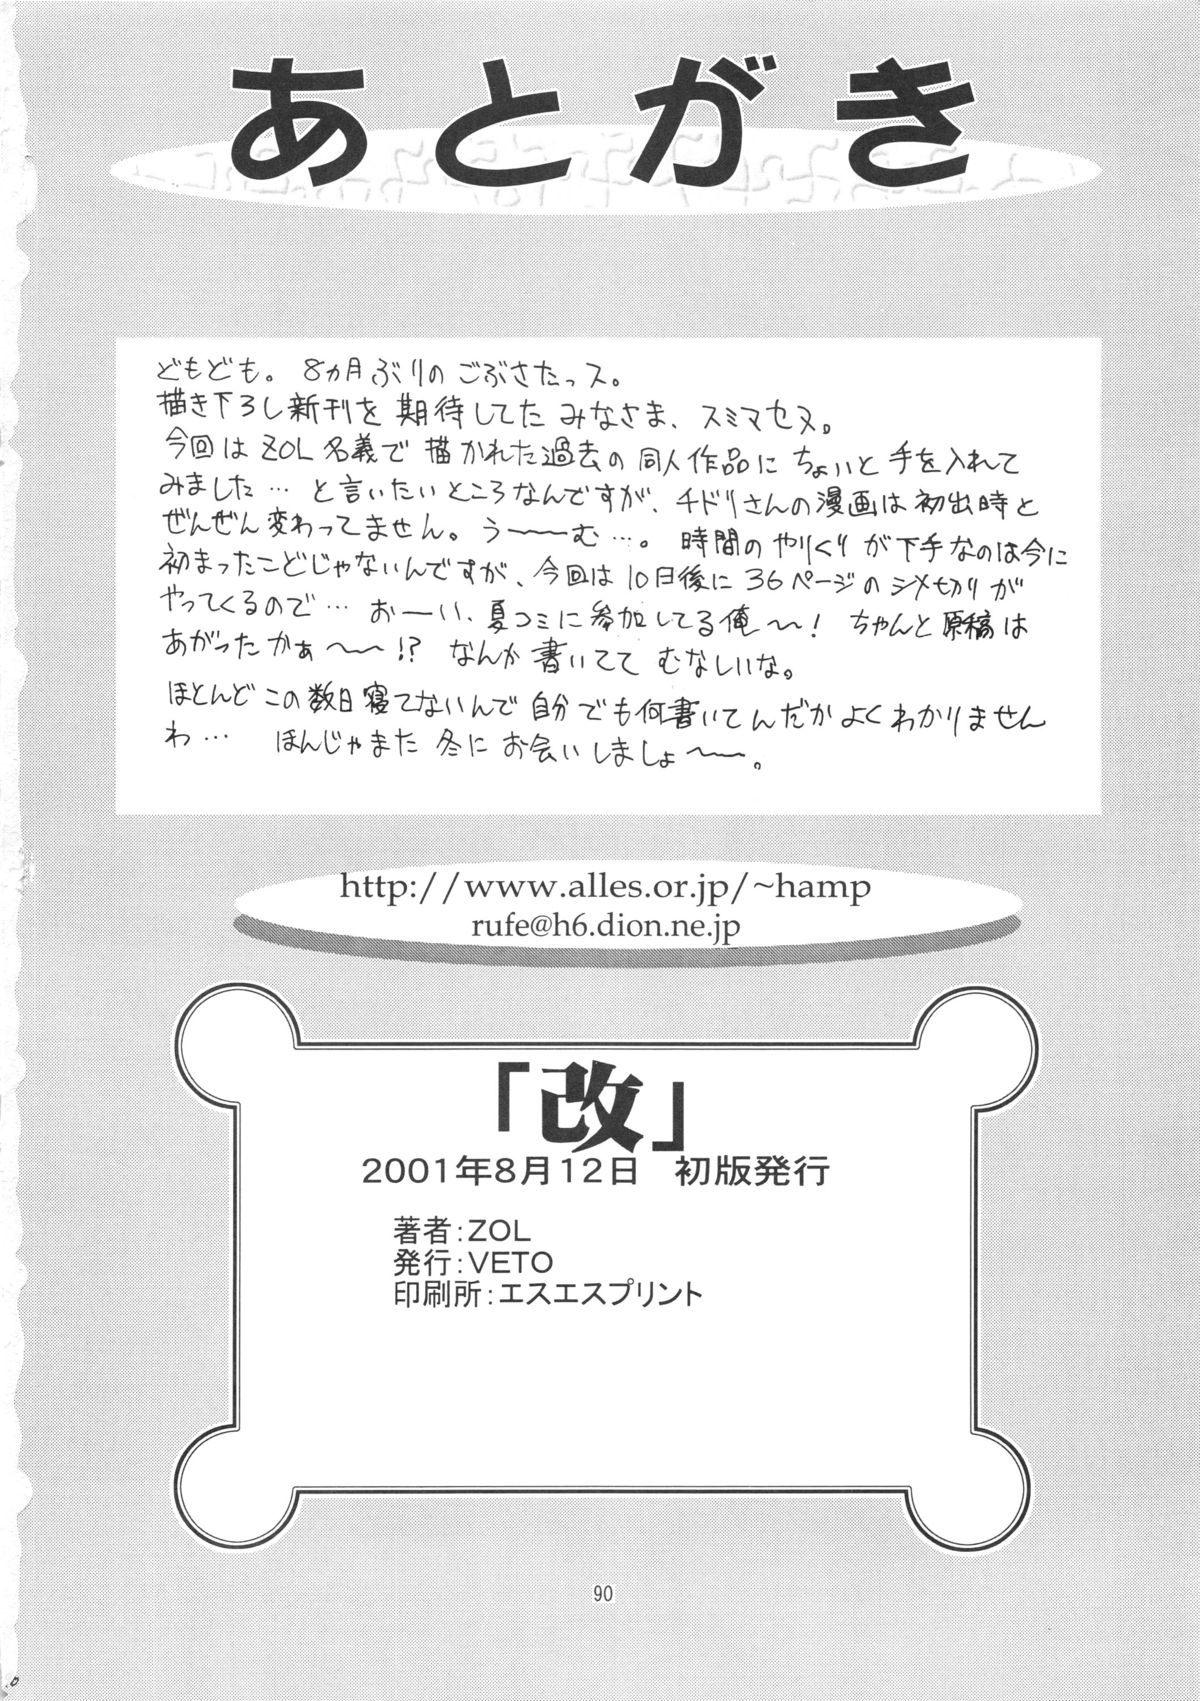 あとがき
どもども。8ヵ月ぶりのごぶさたっス。
描き下ろし新刊を期待してたみなさま、スミマセヌ。
今回はZOL名義で描かれた過去の同人作品にちょいと手を入れて
みました…と言いたいところなんですが、チドリさんの漫画は初出時と
ぜんぜん変わってません。う〜〜む…。時間のやりくりが下手なのは今に
初まったこどじゃないんですが、今回は10日後に36ページのシメ切りが
やってくるので…おーい、夏コミに参加してる俺〜！ちゃんと原稿は
あがったかぁ〜〜!?なんか書いててむなしいな。
ほとんどこの数日寝てないんで自分でも何書いてんだかよくわかりません
わ…ほんじゃまた冬にお会いしましょ〜〜。
http://www.alles.or.jp/~hamp
rufe@h6.dion.ne.jp
「改」
2001年8月12日　初版発行
著者：ZOL
発行：VETO
印刷所：エスエスプリント
90